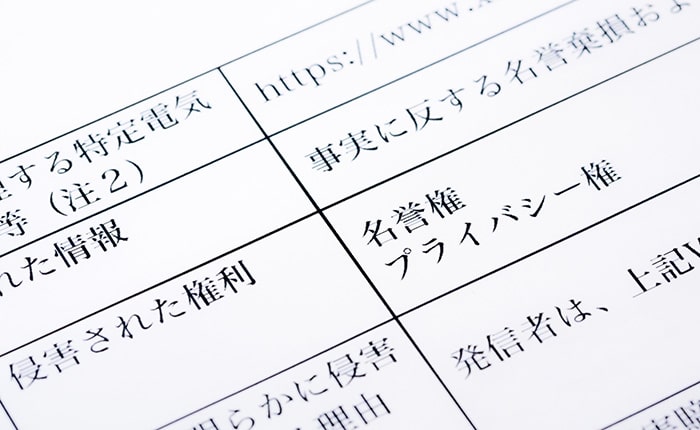 https://www.x
理する特定電気
等（注２）
事実に反する名誉棄損およ
れた情報
侵害された権利
名誉権
プライバシー権
らかに侵害
理由
発信者は、上記V